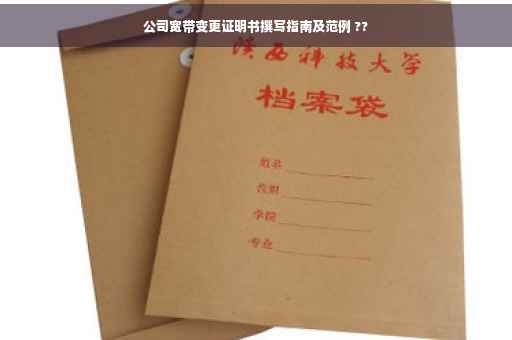 公司宽带变更证明书撰写指南及范例 ??
陕西科技大学
档案袋
姓名
学院
专业